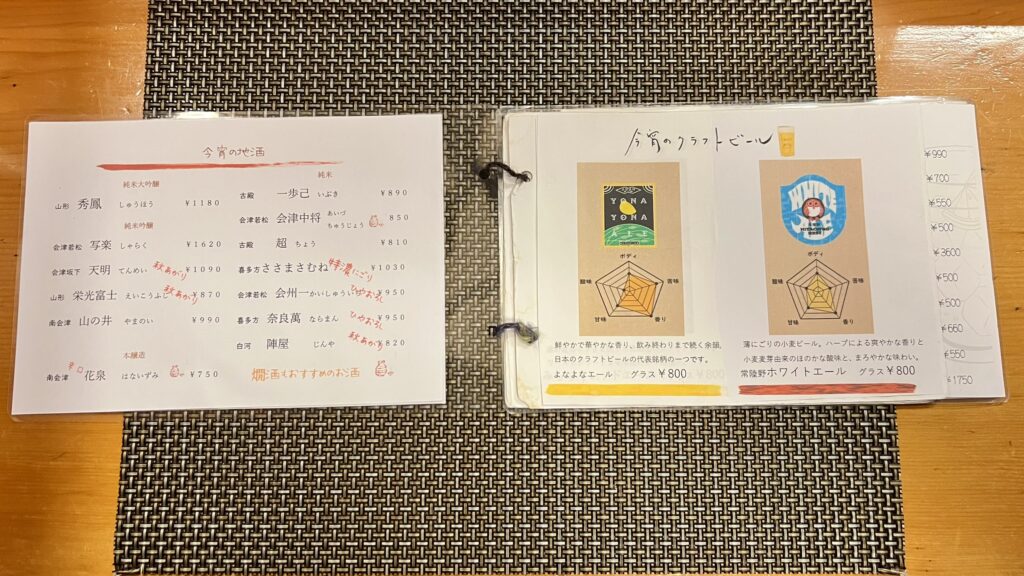 今宵の地酒
純米大吟醸
山形 秀鳳 しゅうほう ¥1180
純米吟醸
会津若松 写楽 しゃらく ¥1620
会津坂下 天明 てんめい 秋あがり ¥1090
山形 栄光富士 えいこうふじ 秋あがり ¥870
南会津 山の井 やまのい ¥990
本醸造
南会津 花泉 はないずみ ¥750
純米
古殿 一歩己 いぶき ¥890
会津若松 会津中将 あいづちゅうじょう 850
古殿 超 ちょう ¥810
喜多方 ささまさむね 特濃にごり ¥1030
会津若松 会州一 かいしゅういち ひやおろし ¥950
喜多方 奈良萬 ならまん ひやおろし ¥950
白河 陣屋 じんや 秋あがり ¥820
燗酒もおすすめのお酒
今宵のクラフトビール
YONA YONA
ボディ
酸味 苦味
甘味 香り
鮮やかで華やかな香り、飲み終わりまで続く余韻。
日本のクラフトビールの代表銘柄の一つです。
よなよなエール グラス¥800
WHITE ALE
ボディ
酸味 苦味
甘味 香り
薄にごりの小麦ビール。ハーブによる爽やかな香りと
小麦麦芽由来のほのかな酸味と、まろやかな味わい。
常陸野ホワイトエール グラス¥800
¥990
¥700
¥550
¥500
¥3600
¥500
¥500
¥660
¥550
¥1750